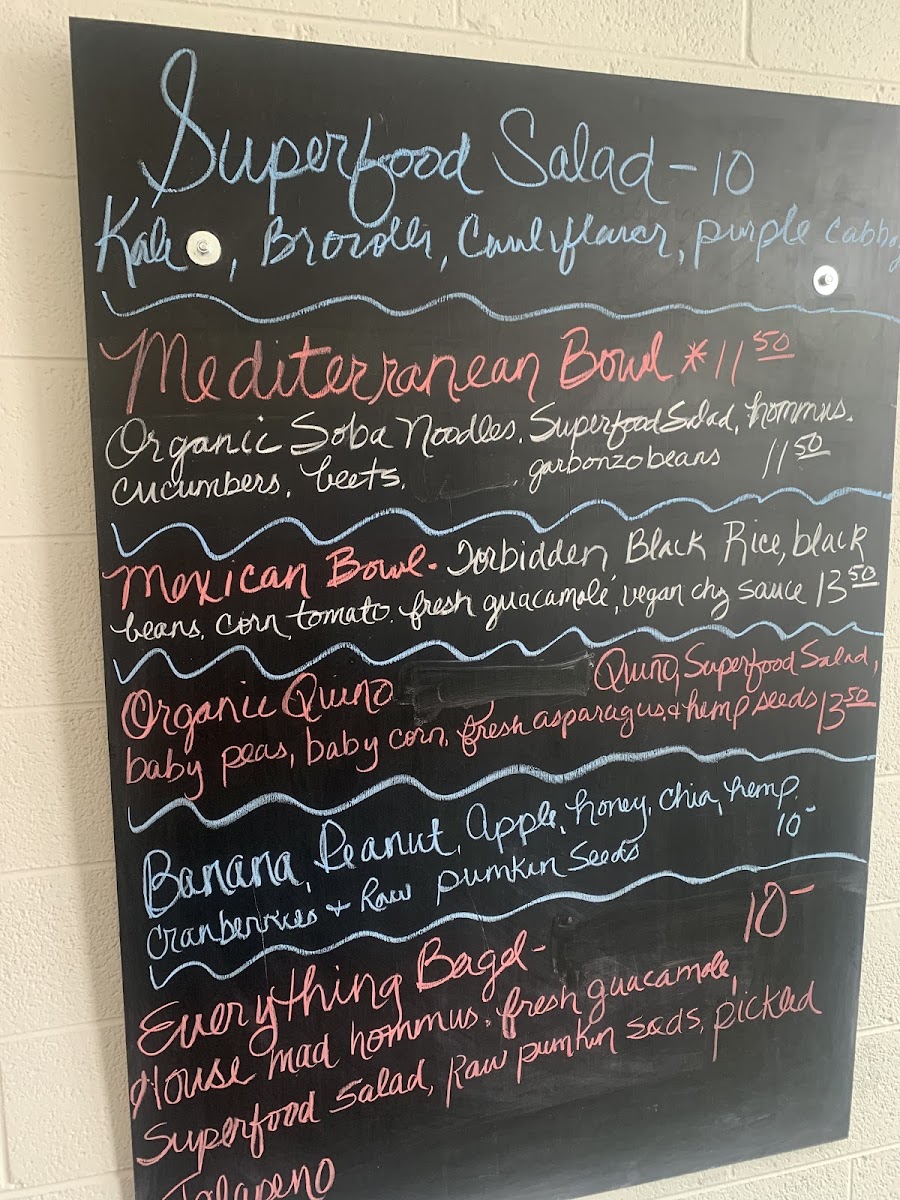 Superfood Salad - 10
Kale, Brocolli, Cauliflower, purple cabba
Mediterranean Bowl * 11 50
Organic Soba Noodles, Superfood Salad, hommus.
cucumbers, beets, garbonzo beans 11 50
Mexican Bowl. Forbidden Black Rice, black
beans, corn, tomato. fresh guacamole, vegan chz sauce 13 50
Organic Quino Quino, Superfood Salad,
baby peas, baby corn, fresh asparagus, & hemp seeds 13 50
Banana, Peanut, Apple, honey, chia, hemp,
cranberries + Raw pumkin seeds 10-
Everything Bagel - 10-
House mad hommus, fresh guacamole,
Superfood Salad, Raw pumkin seeds, pickled
Jalapeno